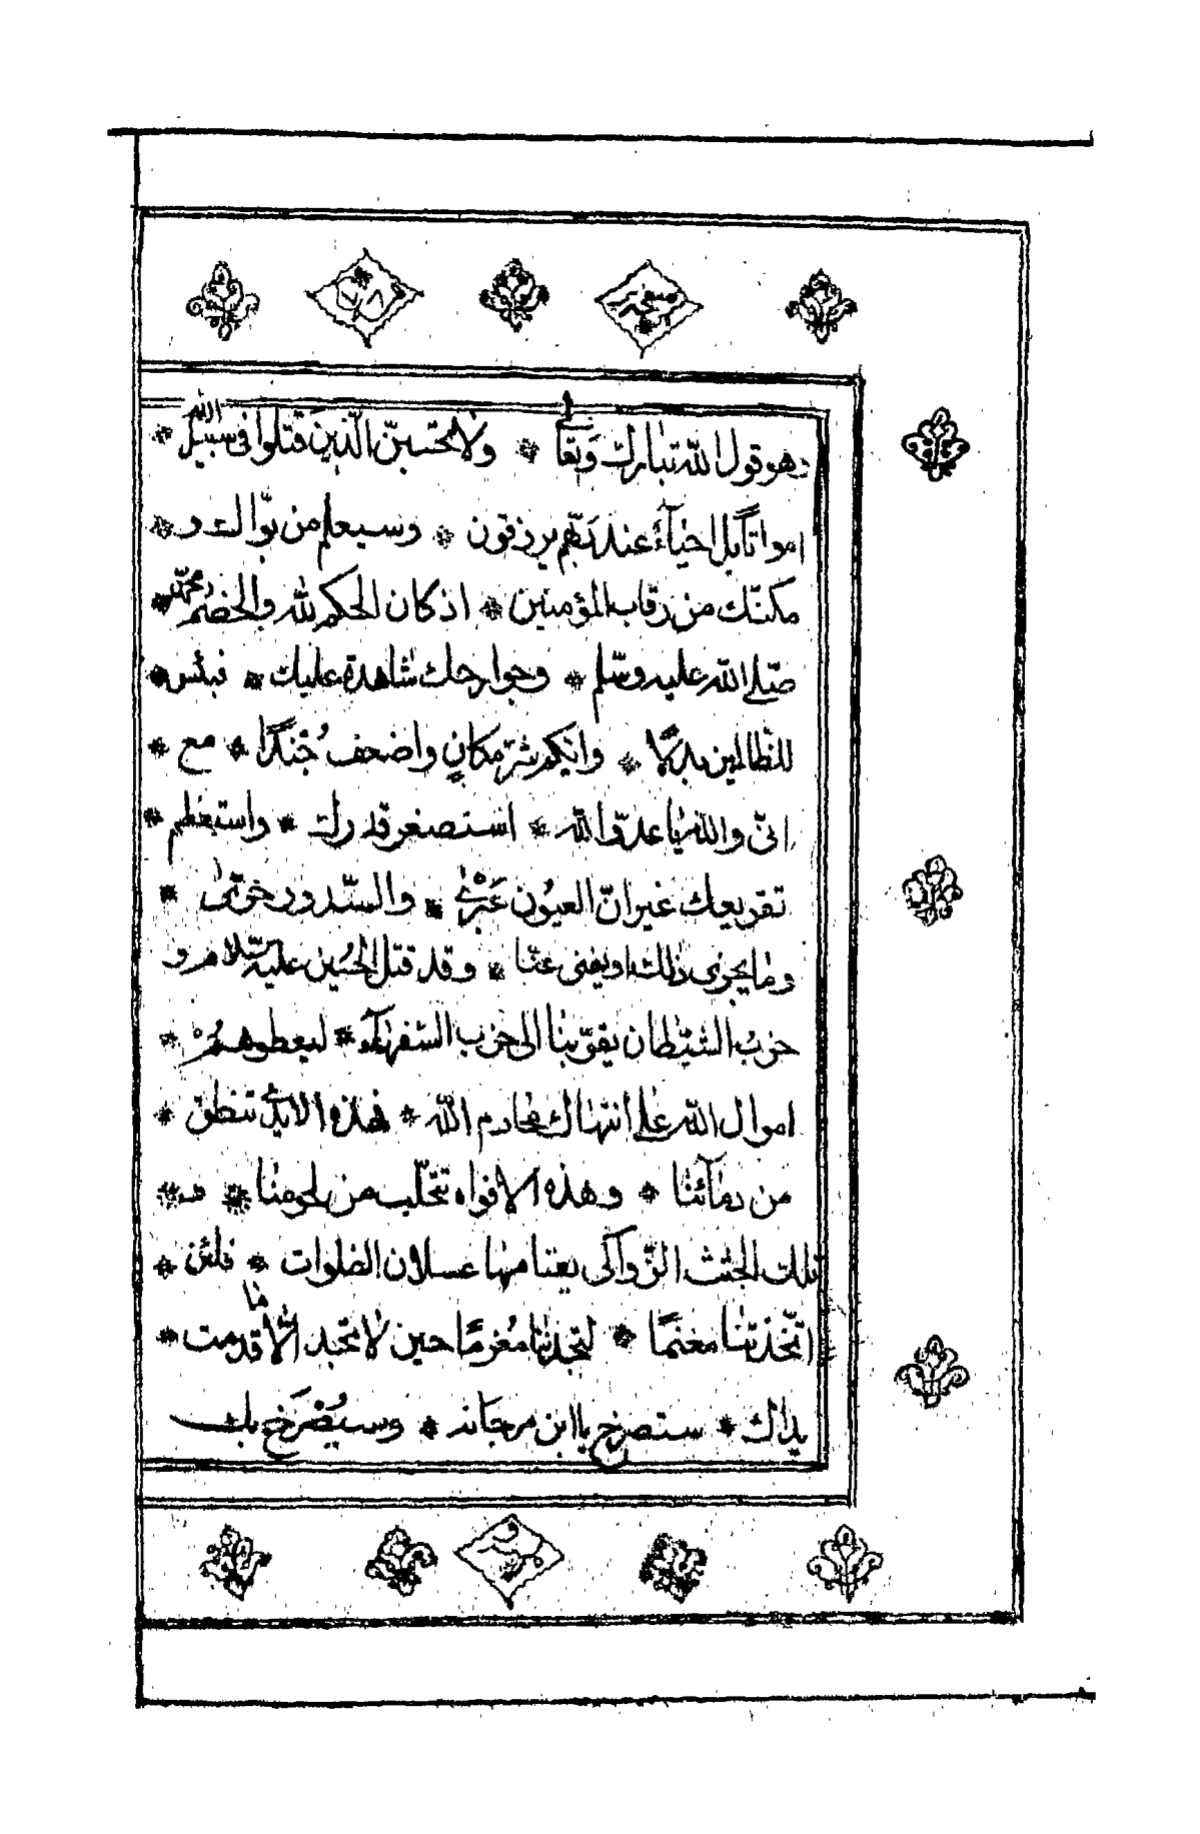 صفحه
٧٨
وهو قول الله تبارك وَتعالى * ولا تحسبنّ الّذين قتلوا في سبيل الله *
امواتًا بل احياءً عند ربّهم يرزقون * وسيعلم من بوّا لك و *
مكنّك من رقاب المؤمنين * اذ كان الحكم لله والخصم محمّد *
صلّى الله عليه وسلّم * وجوارحك شاهدة عليك * فبئس *
للظالمين بدلًا * وايّكم شرّ مكانٍ واضعف جُندًا * مع *
انّى والله يا عدوّ الله * استصغر قدرك * واستعظم *
تقريعك غير انّ العيون عَبْرى * والصّدور حرّى *
وما يجزى ذلك او يغنى عنّا * وقد قتل الحُسين عليه السّلام و
حزبُ الشيطان يقرّبنا الى حزب السّفهآء * ليعطوهُمْ *
اموال الله على انتهاك محارم الله * فهذه الايدى تنطق *
من دمآئنا * وهذه الافواه تتحلّب من لحومنا *
تلك الجثث الزّواكى يعتامها عسلان الفلوات * فلئن *
اتّخذتنا مغنمًا * لتجدننا مُغرمًا حين لا تجد الّا ما قدمت *
يداك * ستصرخ يا ابن مرجانه * وسيُصْرَخ بك